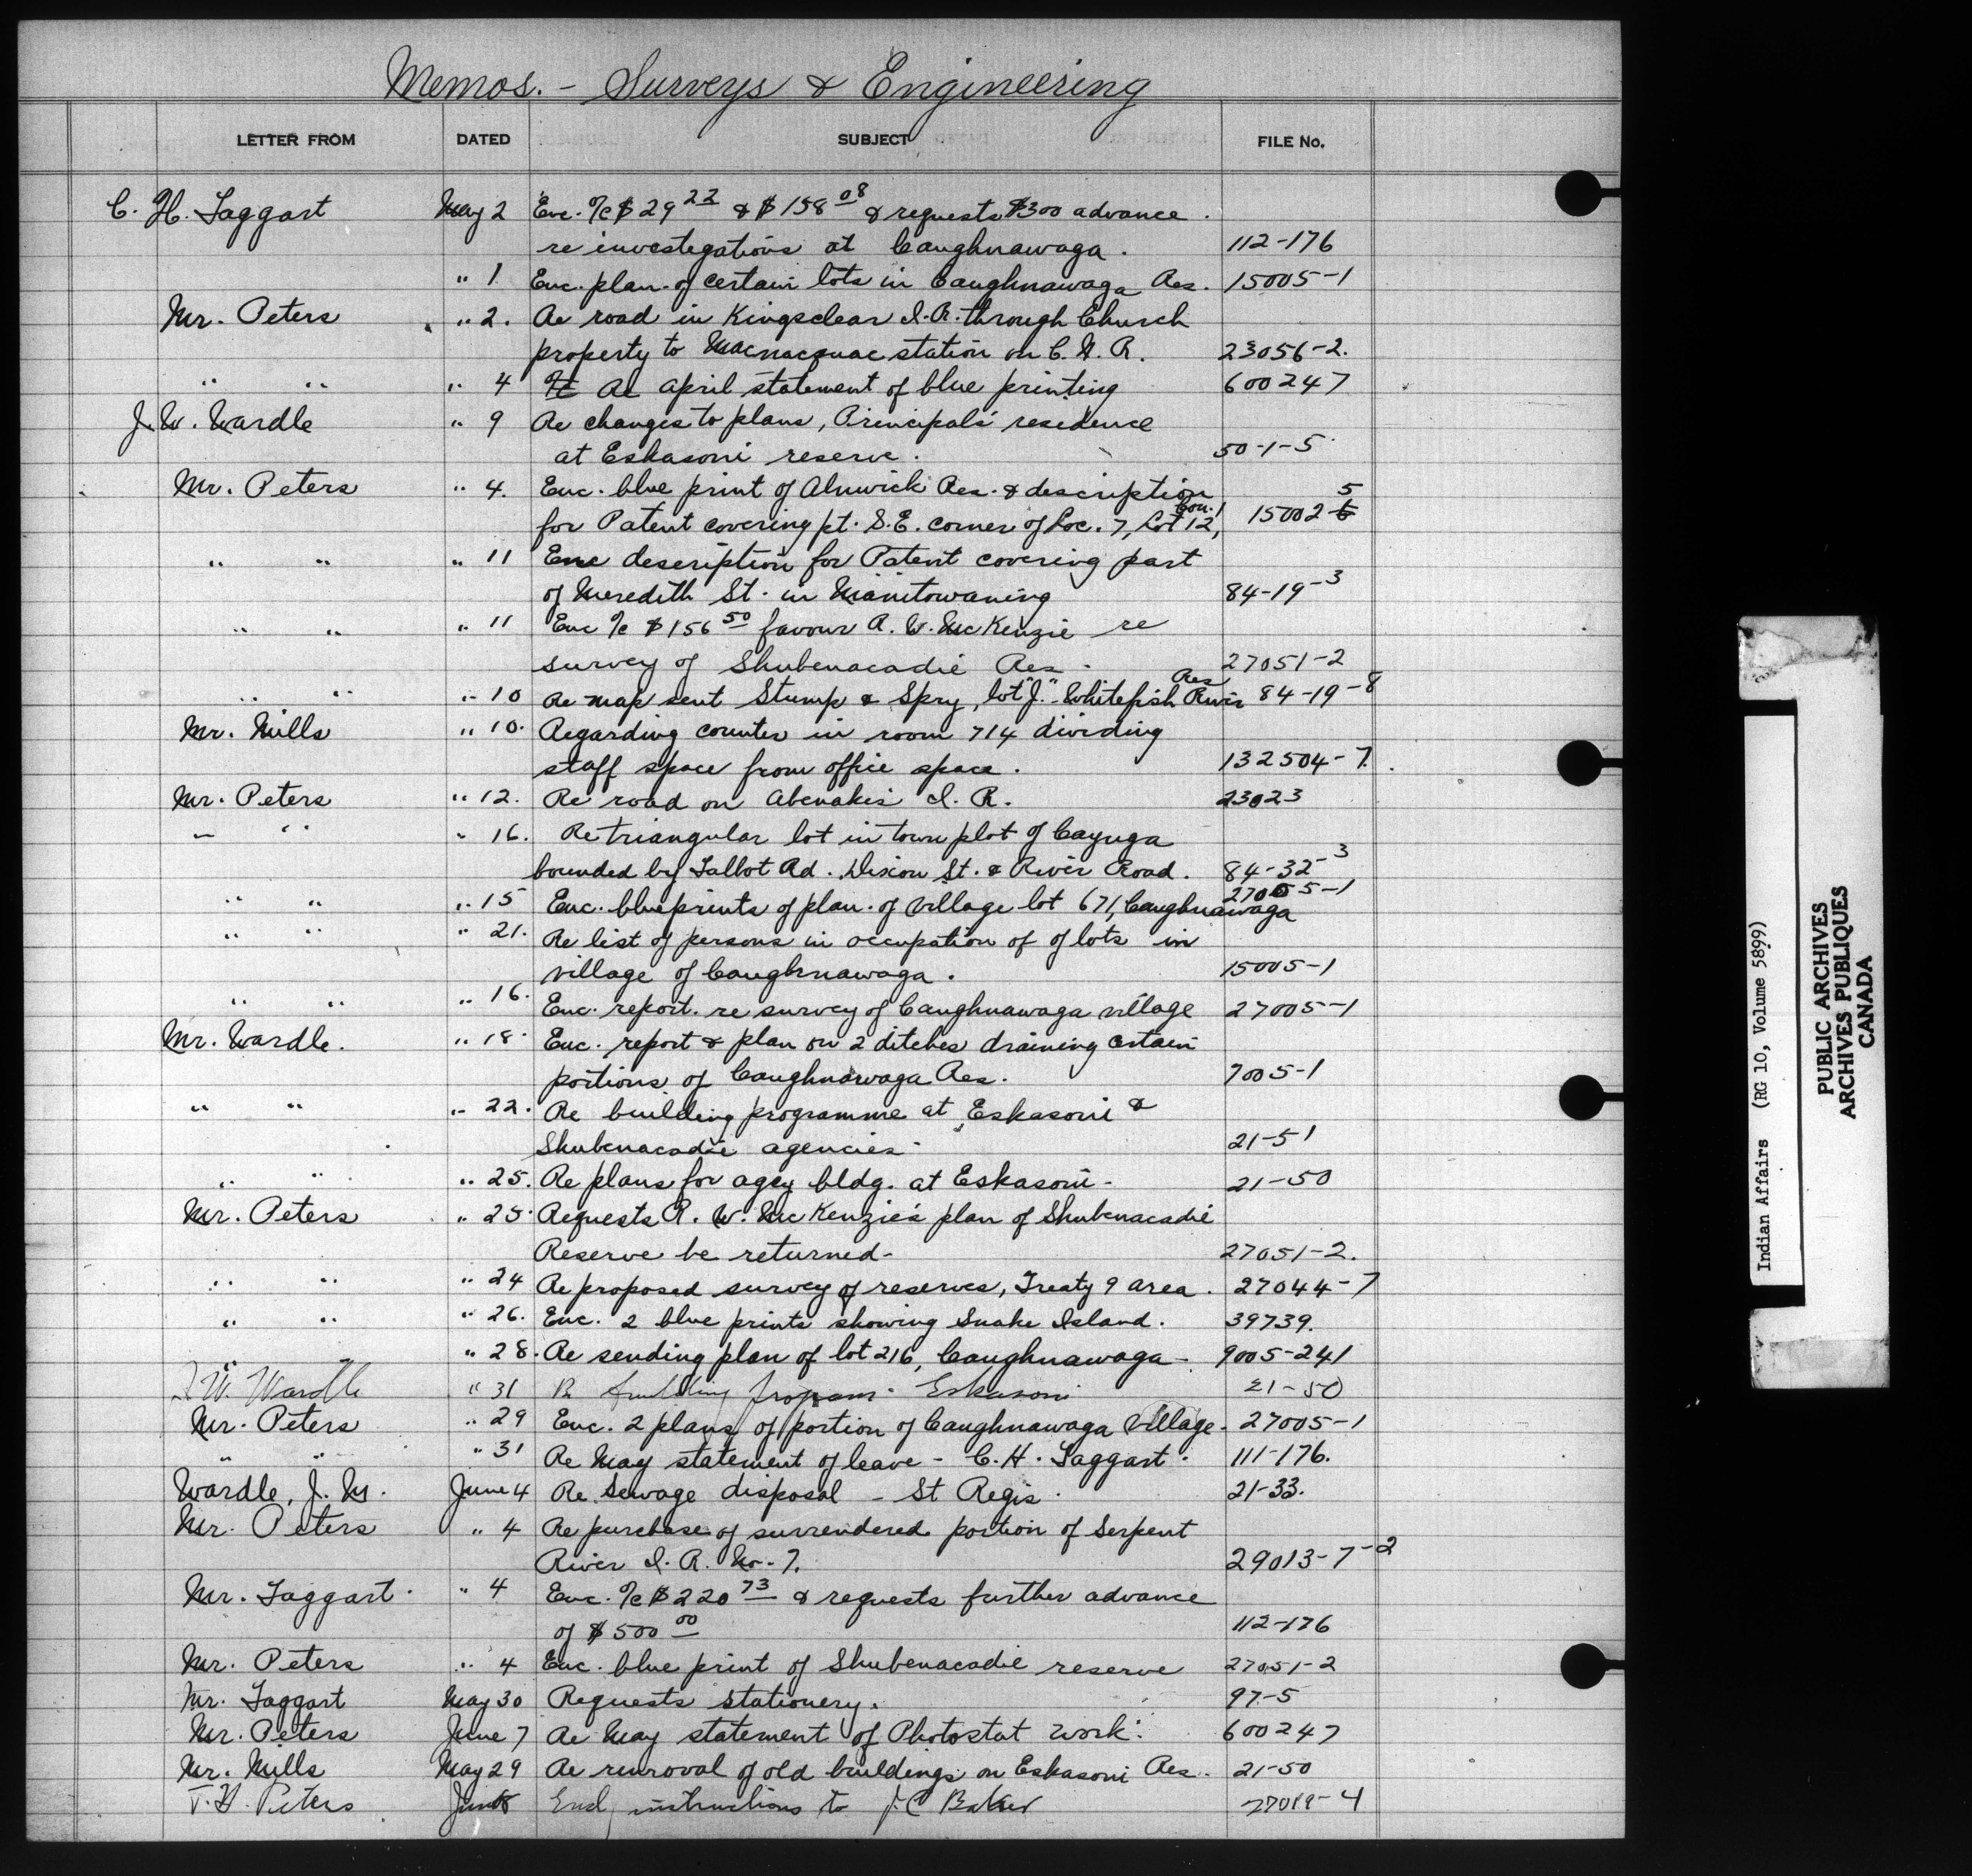 Memos. - Surveys & Engineering
LETTER FROM DATED SUBJECT FILE No.
C. H. Taggart May 2 Enc. %c $29 22 & $158 08 & requests $300 advance.
re investigations at Caughnawaga. 112-176
" 1 Enc. plan of certain lots in Caughnawaga Res. 15005-1
Mr. Peters " 2. Re road in Kingsclear I.R. through Church
property to Macnacquac station on C.N.R. 23056-2.
" " " 4 Re April statement of blue printing 600247
J.W. Wardle " 9 Re changes to plans, Principal's residence
at Eskasoni reserve. 50-1-5
Mr. Peters " 4. Enc. blue print of Alnwick Res. & description
for Patent covering pt. S.E. corner of Loc. 7, Lot 12, Con. 1 15002-5
" " " 11 Enc description for Patent covering part
of Meredith St. in Manitowaning 84-19-3
" " " 11 Enc %c $156 50 favour R. W. McKenzie re
survey of Shubenacadie Res. 27051-2
" " " 10 Re map sent Stump & Spry, lot "J" - Whitefish River Res 84-19-8
Mr. Mills " 10. Regarding counter in room 714 dividing
staff space from office space. 132504-7.
Mr. Peters " 12. Re road on Abenakis I. R. 23023
" " " 16. Re triangular lot in town plot of Cayuga
bounded by Talbot Rd. Dixon St. & River Road. 84-32-3
" " " 15 Enc. blueprints of plan of village lot 671, Caughnawaga 27005-1
" " " 21. Re list of persons in occupation of of lots in
village of Caughnawaga. 15005-1
" " " 16. Enc. report re survey of Caughnawaga village 27005-1
Mr. Wardle. " 18. Enc. report & plan on 2 ditches draining certain
portions of Caughnawaga Res. 7005-1
" " " 22. Re building programme at Eskasoni &
Shubenacadie agencies 21-51
" " " 25. Re plans for agcy bldg. at Eskasoni - 21-50
Mr. Peters " 25. Requests R. W. McKenzie's plan of Shubenacadie
Reserve be returned - 27051-2.
" " " 24 Re proposed survey of reserves, Treaty 9 area. 27044-7
" " " 26. Enc. 2 blue prints showing Snake Island. 39739.
" " 28. Re sending plan of lot 216, Caughnawaga - 9005-241
J W. Wardle " 31 Re building program - Eskasoni 21-50
Mr. Peters " 29 Enc. 2 plans of portion of Caughnawaga Village. 27005-1
" " " 31 Re May statement of leave - C. H. Taggart. 111-176.
Wardle, J. M. June 4 Re Sewage disposal - St Regis. 21-33.
Mr. Peters " 4 Re purchase of surrendered portion of Serpent
River I. R. No. 7. 29013-7-2
Mr. Taggart " 4 Enc. %c $220 73 & requests further advance
of $500 00 112-176
Mr. Peters " 4 Enc. blue print of Shubenacadie reserve 27051-2
Mr. Taggart May 30 Requests stationery. 97-5
Mr. Peters June 7 Re May statement of Photostat work. 600247
Mr. Mills May 29 Re removal of old buildings on Eskasoni Res. 21-50
T. H. Peters June 8 Encl instructions to J. C Baker 27019-4
Indian Affairs (RG 10, Volume 5899)
PUBLIC ARCHIVES
ARCHIVES PUBLIQUES
CANADA